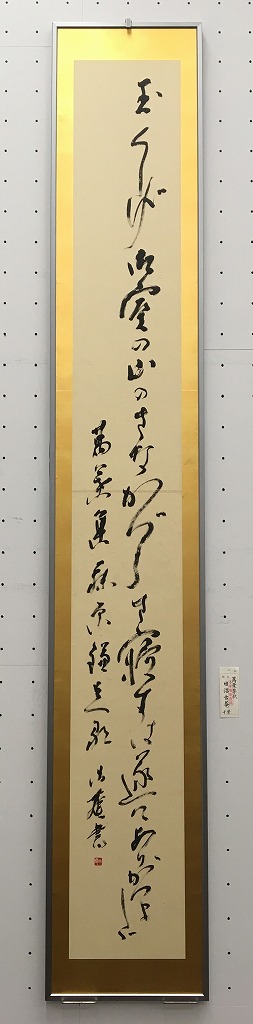 玉くしげ御室の山のさなかづらさ寝ずは遂にありかつましじ
萬葉集藤原鎌足歌 書
千葉